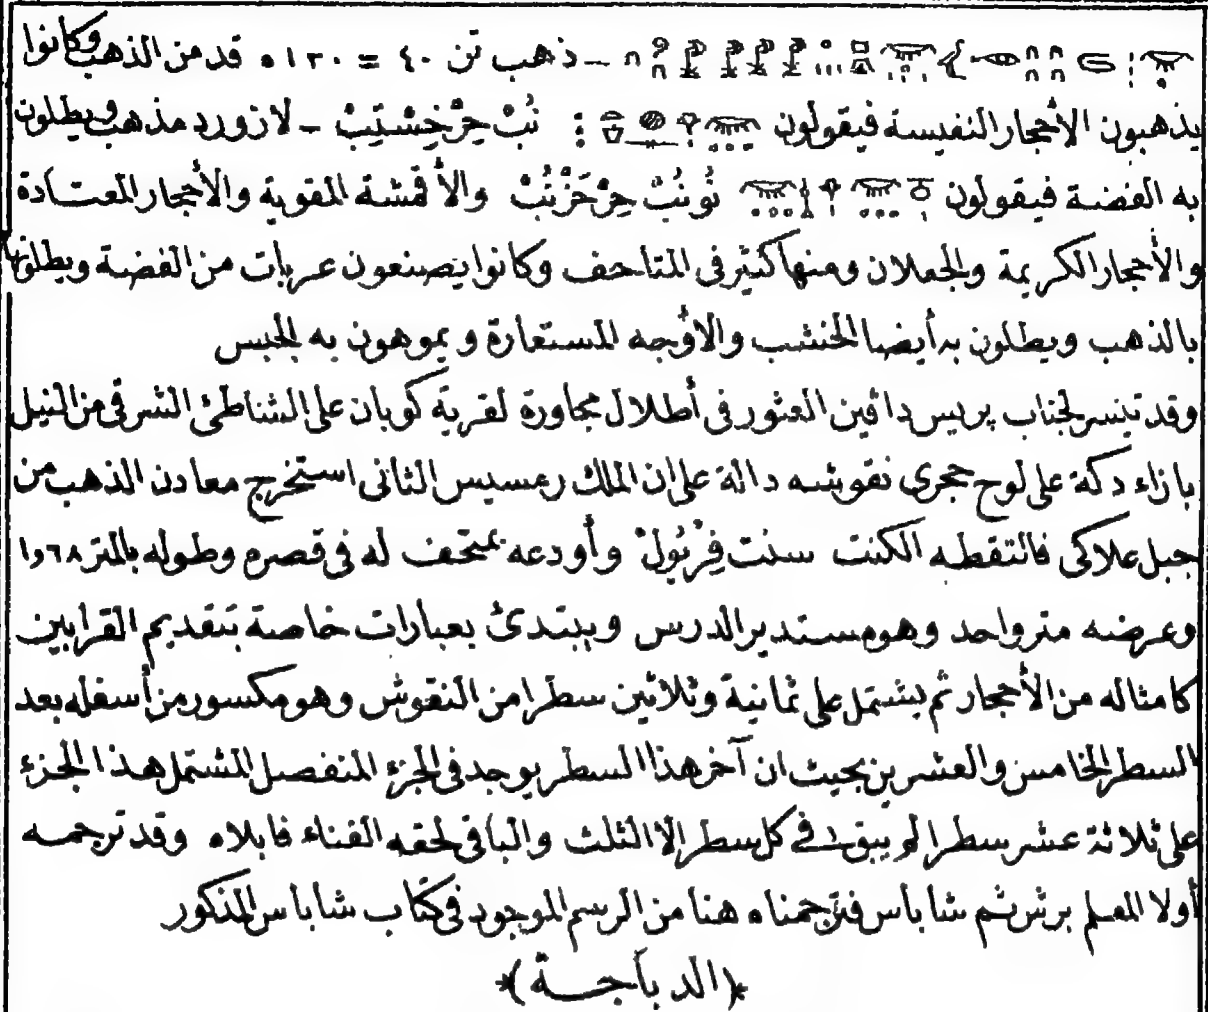 ـ ذهب تن ٤٠ = ١٢٠ه قد من الذهب وكانوا
يذهبون الأحجار النفيسة فيقولون : نُبْ حِرْ خِسْتِبْ ـ لازورد مذهب ويطلون
به الفضة فيقولون نُو نُبْ حِرْ حَزْ نُبْ والأقمشة المقوية والأحجار المعتادة
والأحجار الكريمة والجعلان ومنها كثير في المتاحف وكانوا يصنعون عربات من الفضة ويطلونها
بالذهب ويطلون به أيضا الخشب والأوجه المستعارة ويموهون به الجبس
وقد تيسر لجناب پريس دافين العثور في أطلال مجاورة لقرية كوبان على الشاطئ الشرقي من النيل
بازاء دكة على لوح حجرى نقوشه دالة على ان الملك رعمسيس الثانى استخرج معادن الذهب من
جبل علاكى فالتقطه الكنت سنت فِرْيُولْ وأودعه بمتحف له في قصره وطوله بالمتر ٦٨ و١
وعرضه متر واحد وهو مستدير الرس ويبتدئ بعبارات خاصة بتقديم القرابين
كامثاله من الأحجار ثم يشتمل على ثمانية وثلاثين سطرا من النقوش وهو مكسور من أسفله بعد
السطر الخامس والعشرين بحيث ان آخر هذا السطر يوجد في الجزء المنفصل المشتمل هذا الجزء
على ثلاثة عشر سطرا لم يبق في كل سطر إلا الثلث والباقي لحقه الفناء فابلاه وقد ترجمه
أولا المعلم برش ثم شاباس فترجمناه هنا من الرسم الموجود في كتاب شاباس المذكور
*(الديباجة)*